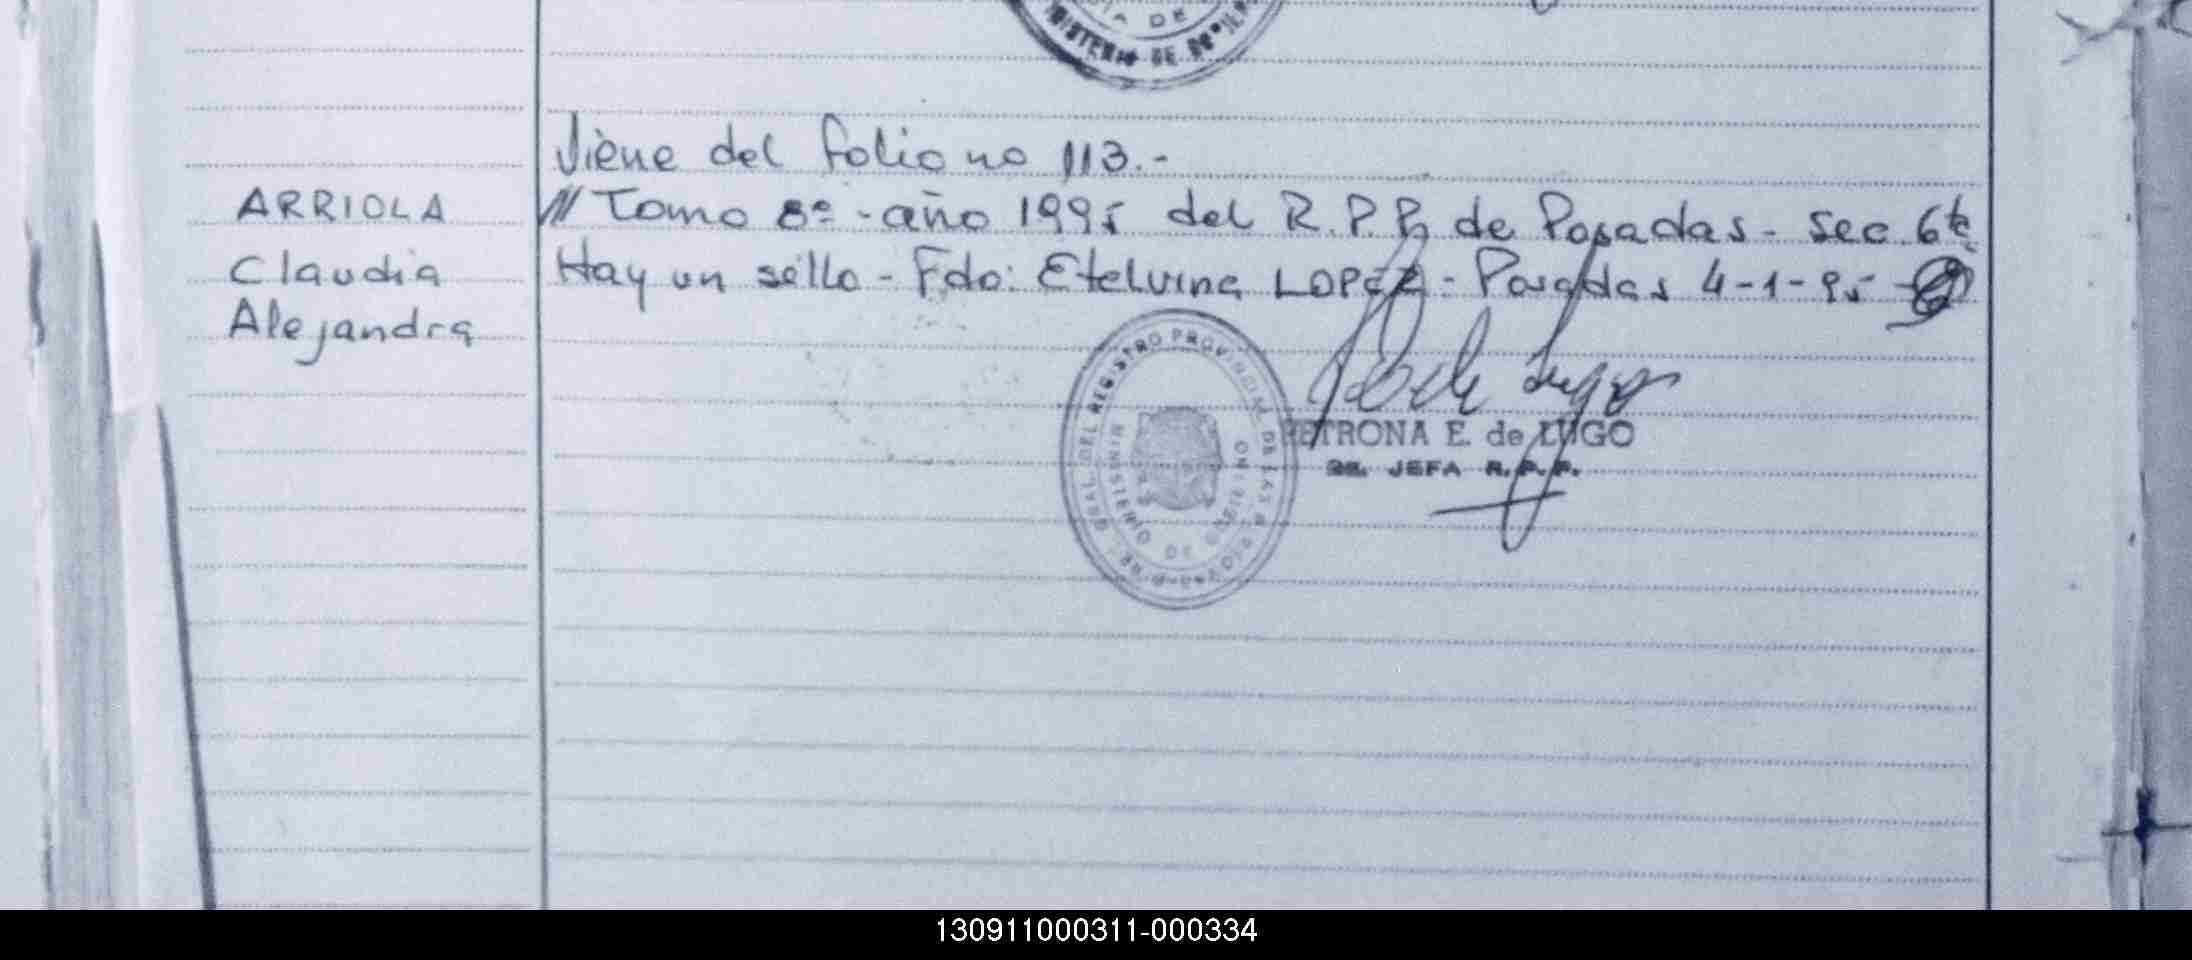 MINISTERIO DE GOBIERNO
Viene del folio no 113.-
ARRIOLA
/// Tomo 8º - año 1995 del R.P.P. de Posadas - Sec. 6ta
Claudia
Hay un sello - Fdo: Etelvina LOPEZ - Posadas 4-1-95
Alejandra
GRAL. DEL REGISTRO PROVINCIAL DE LAS PERSONAS
MINISTERIO DE GOBIERNO
PETRONA E. de LUGO
JEFA R.P.P.
130911000311-000334